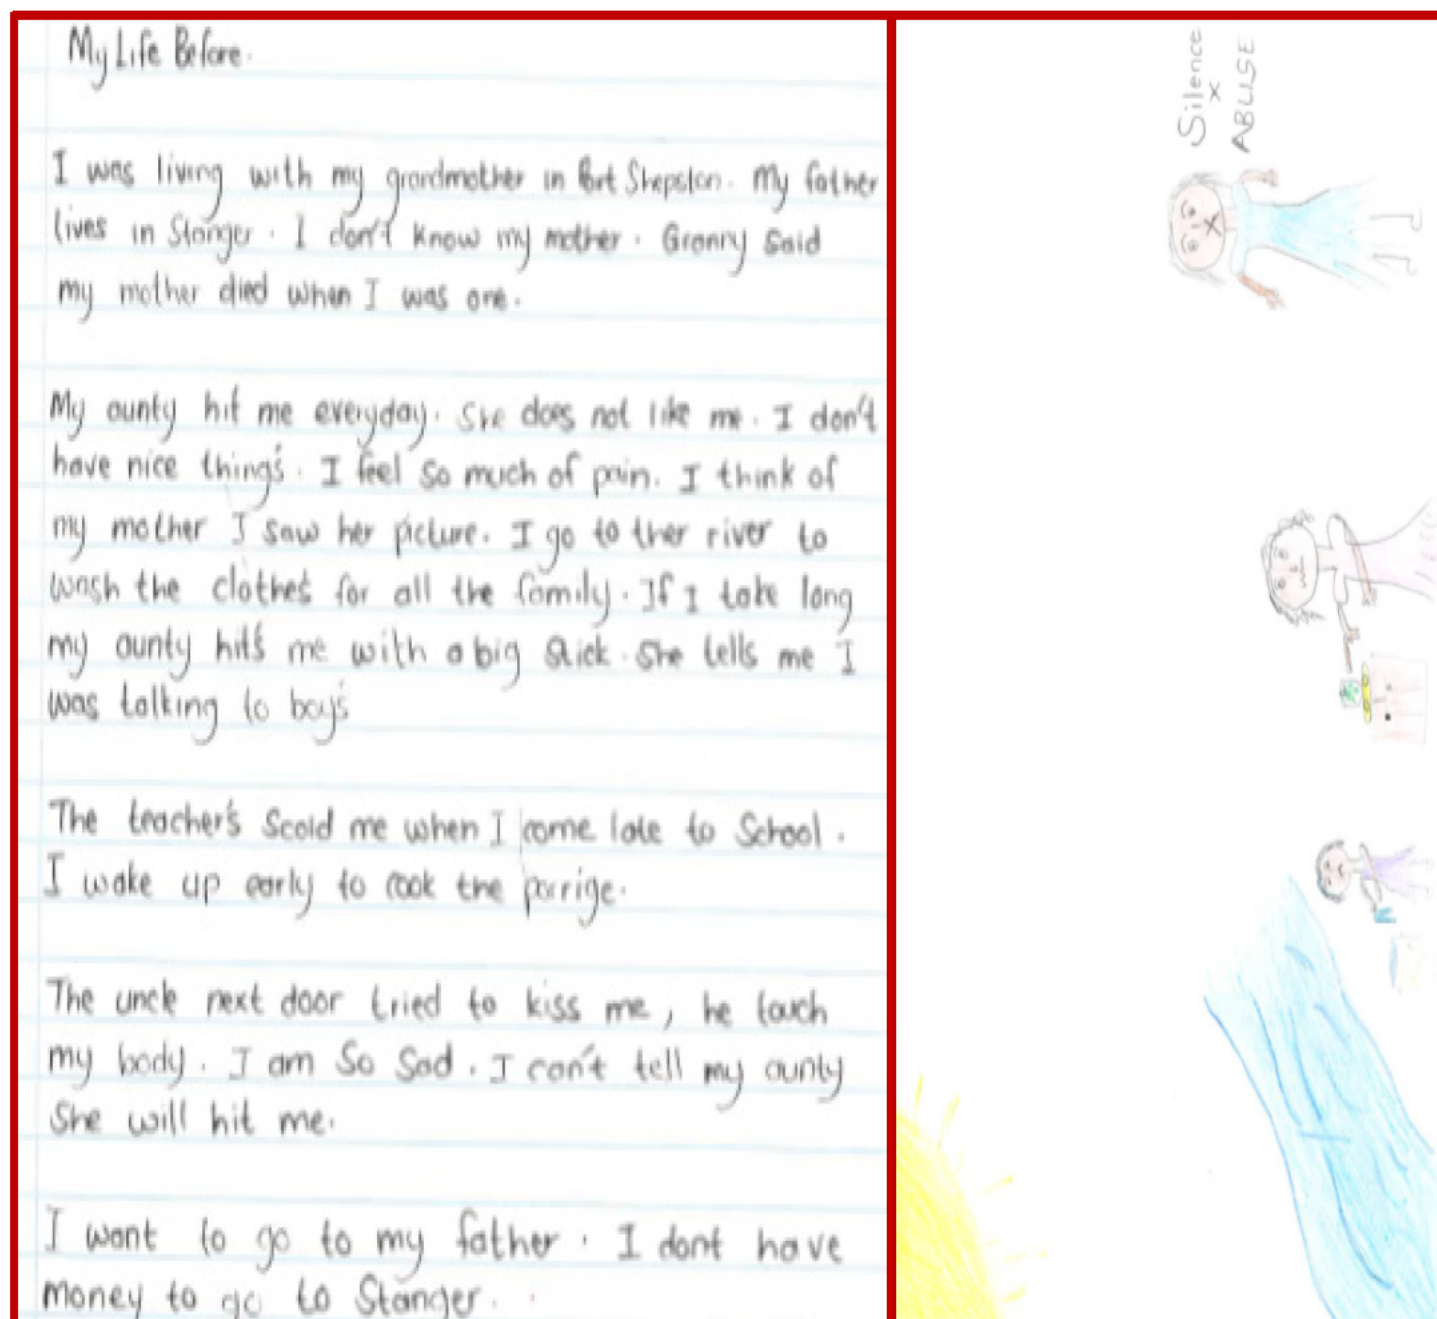 My Life Before.
I was living with my grandmother in Port Shepston. My father
lives in Stanger. I don't know my mother. Granny said
my mother died when I was one.
My aunty hit me everyday. She does not like me. I don't
have nice thing's. I feel so much of pain. I think of
my mother I saw her picture. I go to ther river to
wash the clothe's for all the family. If I take long
my aunty hit's me with a big stick. She tells me I
was talking to boy's
The teacher's scold me when I come late to School.
I wake up early to cook the porrige.
The uncle next door tried to kiss me, he touch
my body. I am so sad. I can't tell my aunty
She will hit me.
I want to go to my father. I dont have
money to go to Stanger.
Silence
x
ABUSE